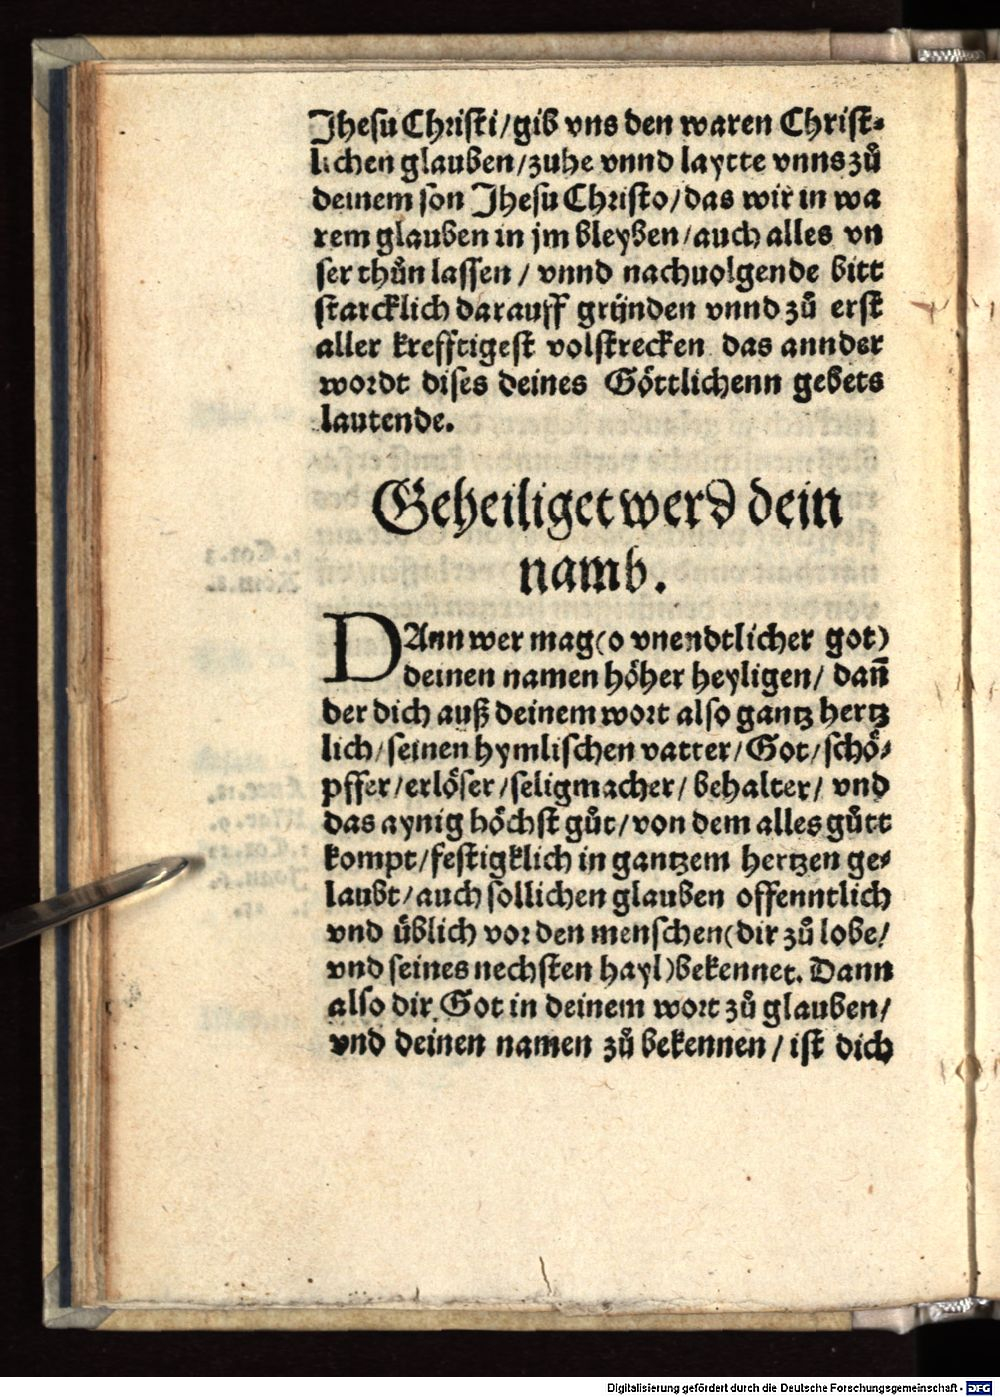 Jhesu Christi/gib vns den waren Christ⸗
lichen glauben/zuhe vnnd laytte vnns zů
deinem son Jhesu Christo/das wir in wa
rem glauben in jm bleyben/auch alles vn
ser thůn lassen / vnnd nachuolgende bitt
starcklich darauff gründen vnnd zů erst
aller krefftigest volstrecken das annder
wordt dises deines Göttlichenn gebets
lautende.
Geheiliget werd dein
namb.
DAnn wer mag(o vnendtlicher got)
deinen namen höher heyligen/ dañ
der dich auß deinem wort also gantz hertz
lich/seinen hymlischen vatter/Got/schö⸗
pffer/erlöser/seligmacher/behalter/ vnd
das aynig höchst gůt/von dem alles gůtt
kompt/festigklich in gantzem hertzen ge⸗
laubt/auch sollichen glauben offenntlich
vnd üblich vor den menschen(dir zů lobe/
vnd seines nechsten hayl)bekennet. Dann
also dir Got in deinem wort zů glauben/
vnd deinen namen zů bekennen/ist dich
Digitalisierung gefördert durch die Deutsche Forschungsgemeinschaft - DFG